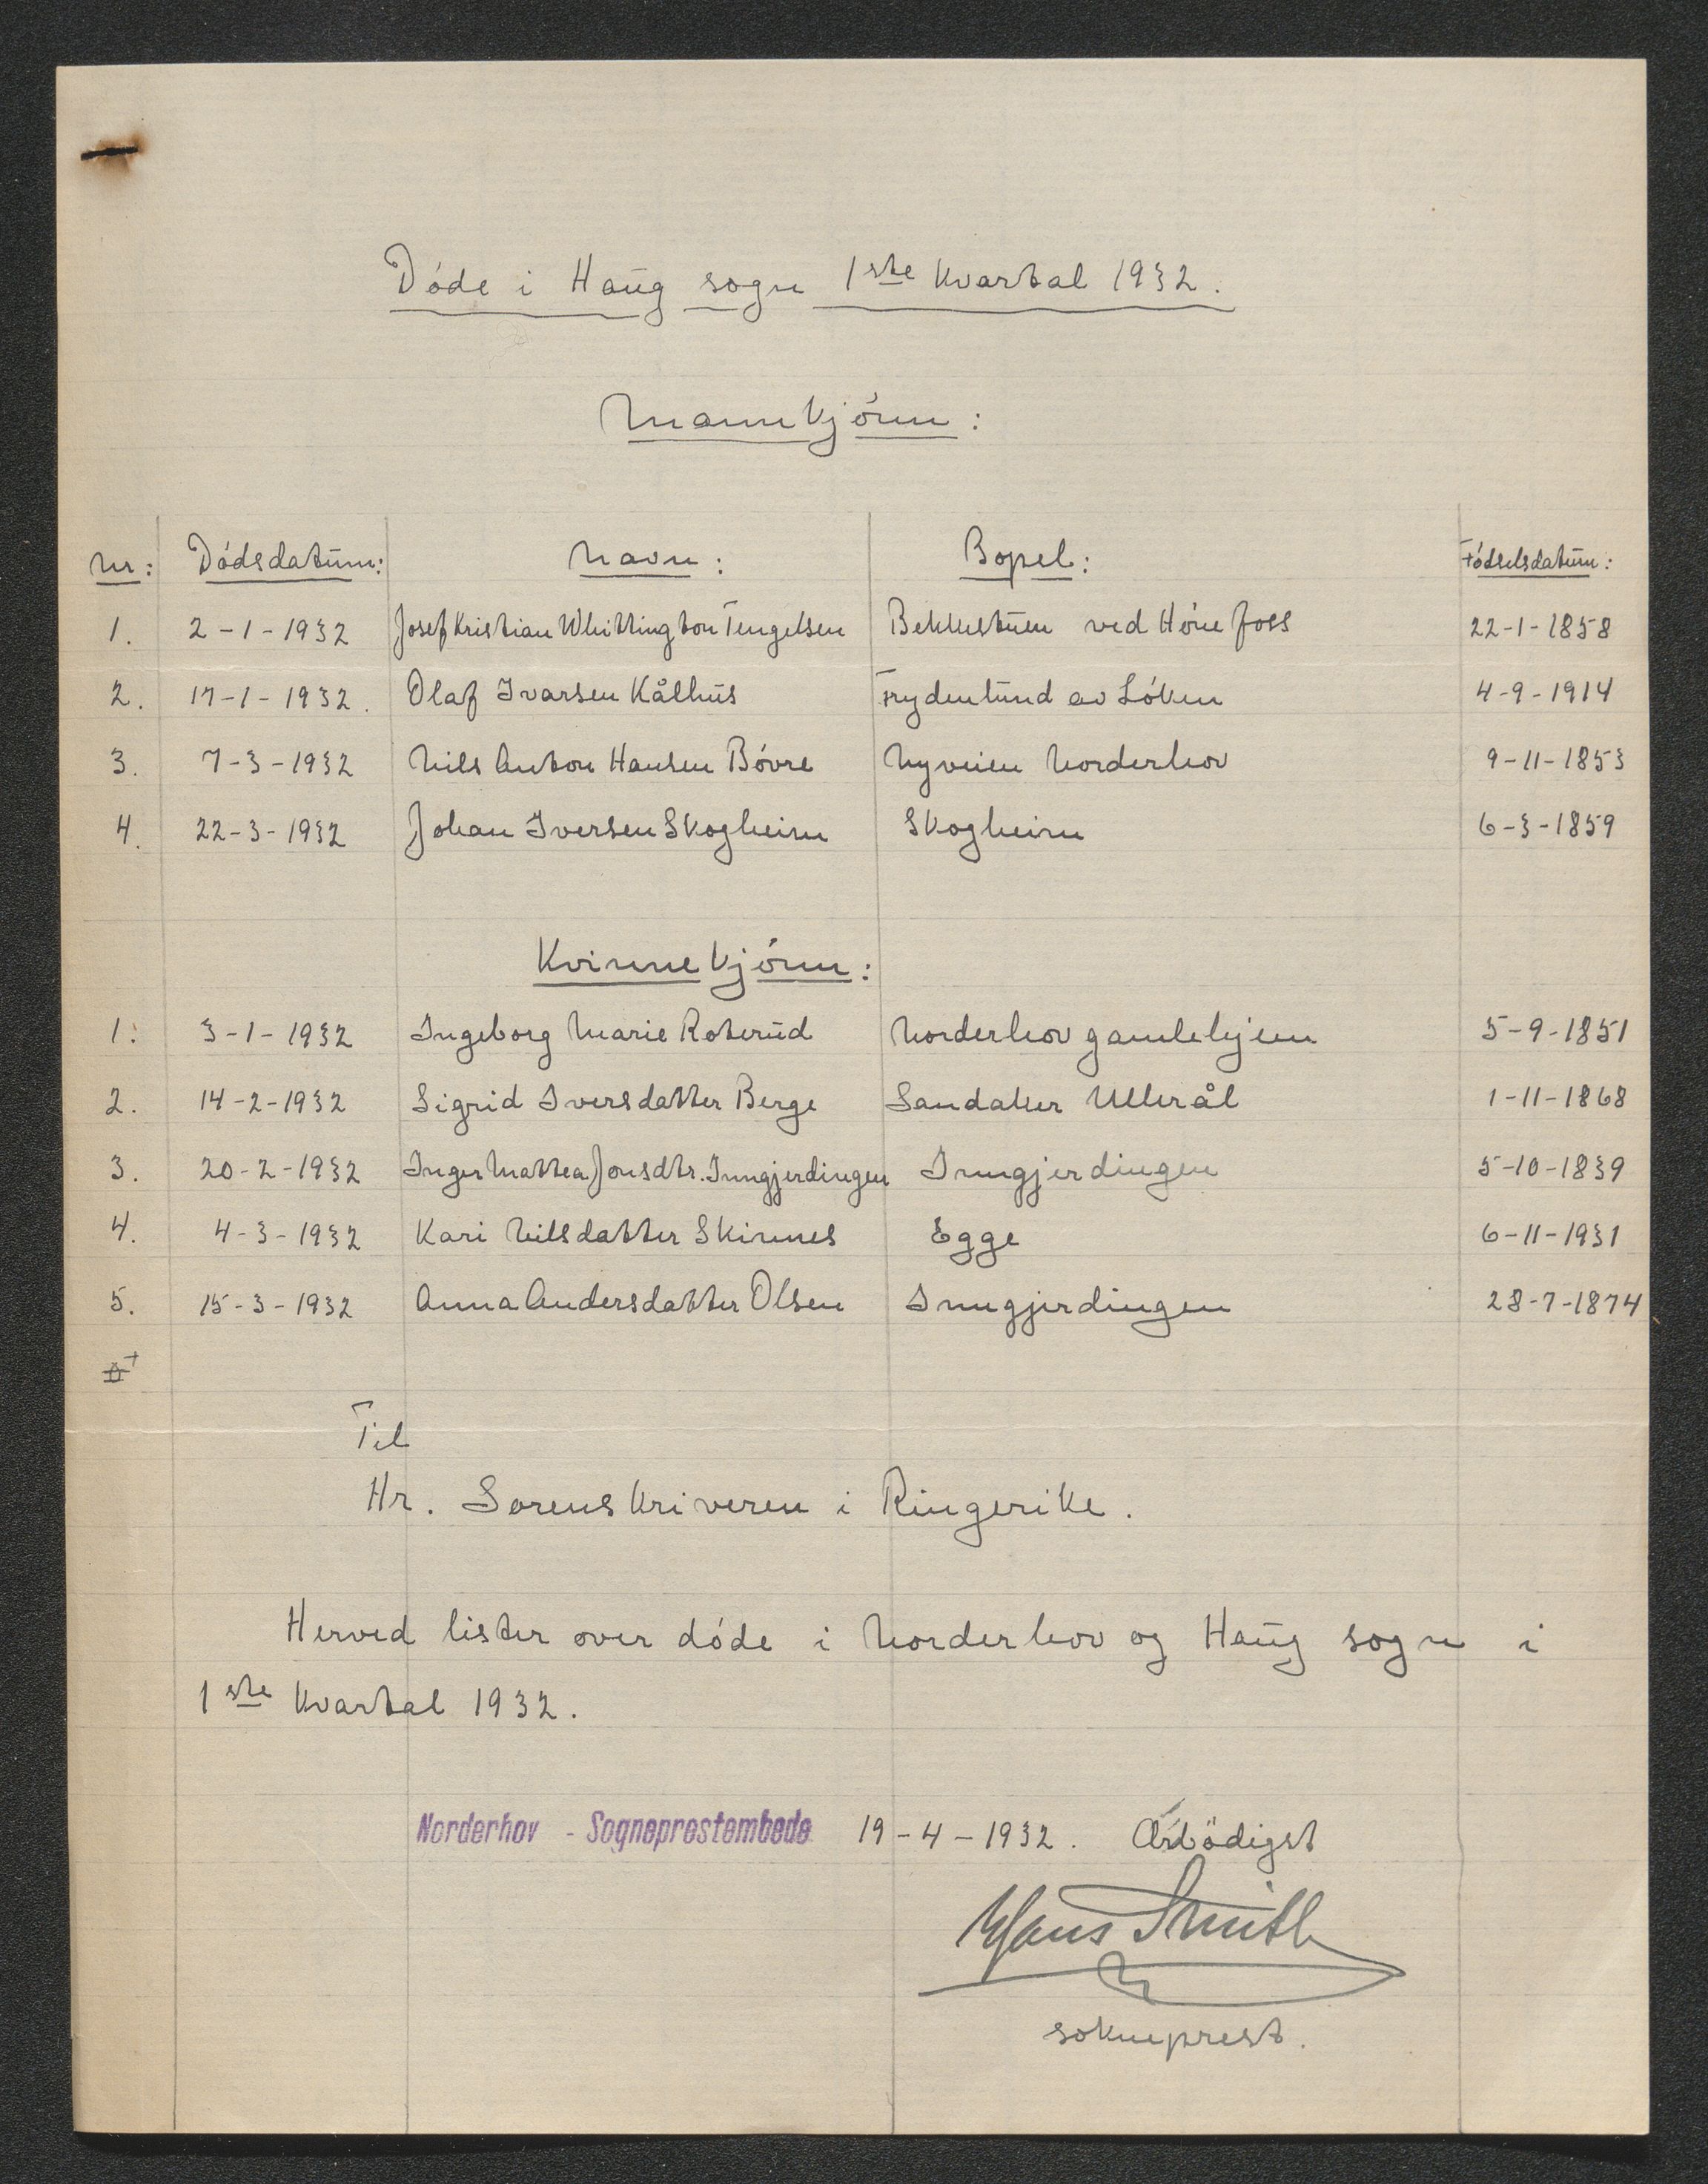 Døde i Haug sogn 1ste kvartal 1932.
Mannkjønn:
Nr: Dødsdatum: Navn: Bopel: Fødselsdatum:
1. 2-1-1932 Josef Kristian Whittington Tengelsen Bekkestuen ved Hønefoss 22-1-1858
2. 17-1-1932. Olaf Ivarsen Kålhus Frydenlund av Løken 4-9-1914
3. 7-3-1932 Nils Anton Hansen Bøvre Nyveien Norderhov 9-11-1853
4. 22-3-1932 Johan Iversen Skogheim Skogheim 6-3-1859
Kvinnekjønn:
1. 3-1-1932 Ingeborg Marie Roterud Norderhov gamlehjem 5-9-1851
2. 14-2-1932 Sigrid Iversdatter Berge Sandaker Ullerål 1-11-1868
3. 20-2-1932 Inger Mathea Jonsdtr. Inngjerdingen Inngjerdingen 5-10-1839
4. 4-3-1932 Kari Nilsdatter Skinnes Egge 6-11-1931
5. 15-3-1932 Anna Andersdatter Olsen Inngjerdingen 28-7-1874
Til
Hr. Sorenskriveren i Ringerike.
Herved lister over døde i Norderhov og Haug sogn i
1ste kvartal 1932.
Norderhov - Sogneprestembede 19-4-1932. Ærbödigst
Hans Smith
sokneprest.